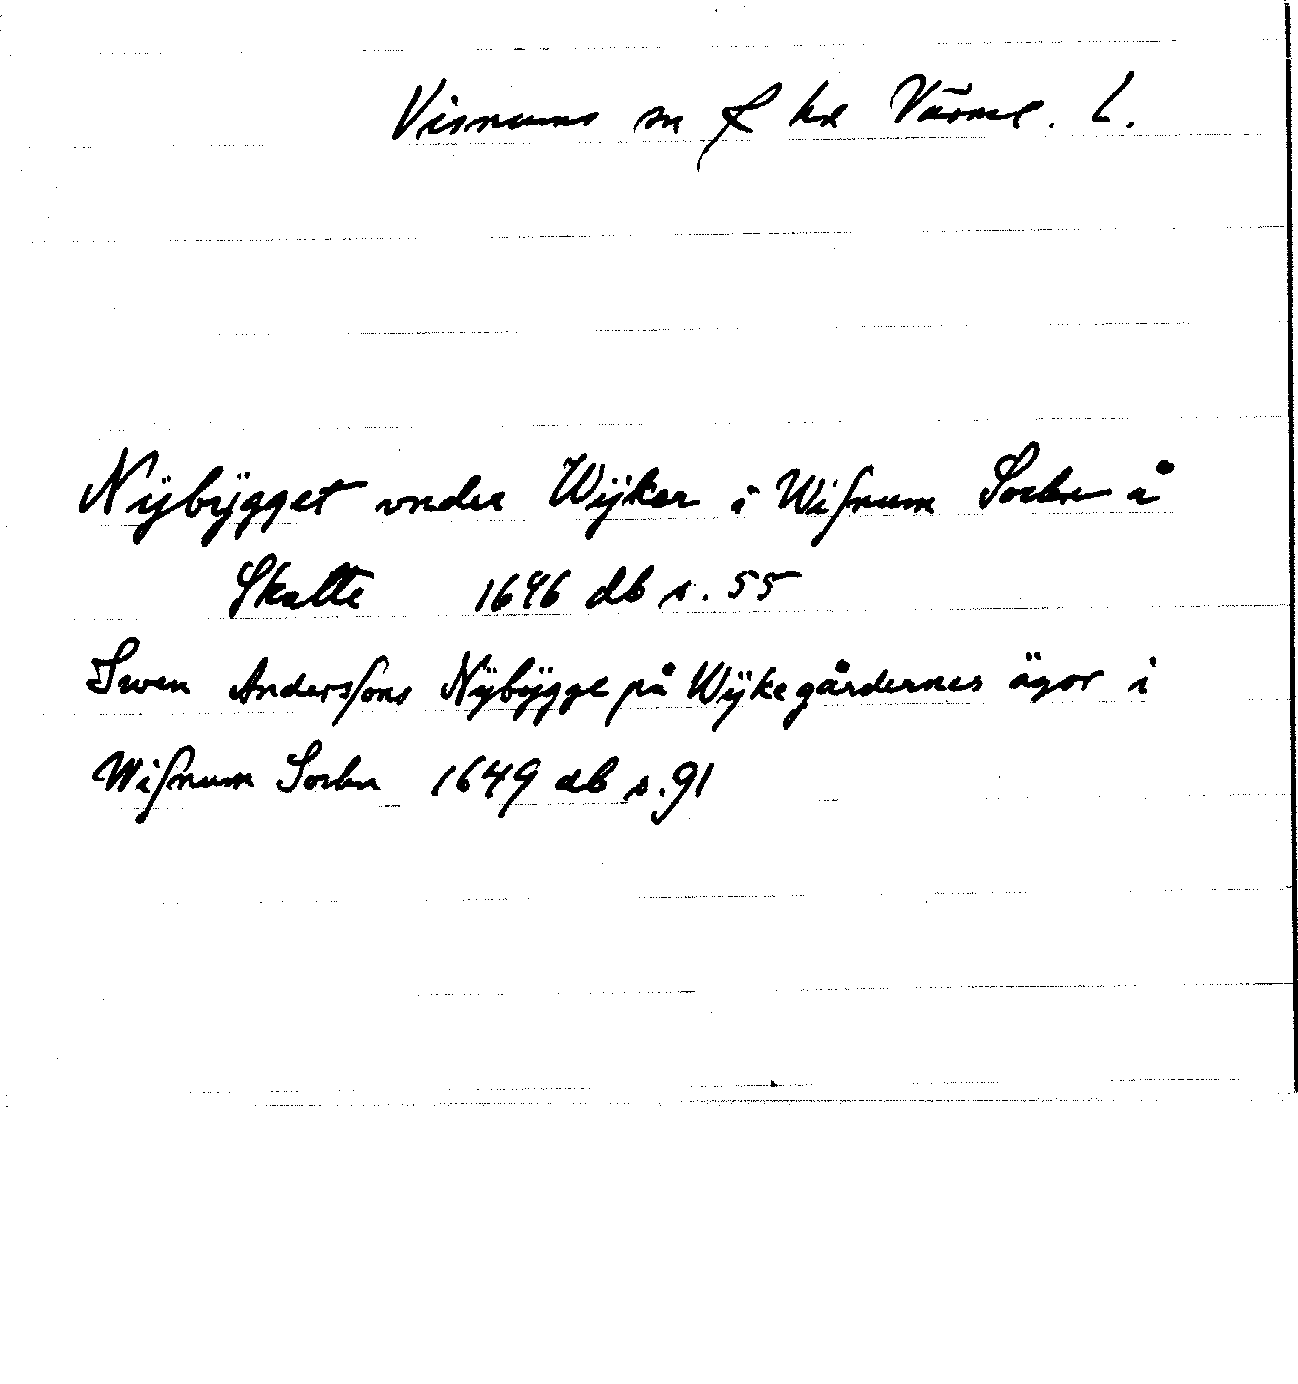 Visnums sn & hd Värml. L.
Nÿbÿgget vnder Wÿker i Wisnum Sochn å
Skatte 1646 db s. 55
Swen Anderssons Nÿbÿgge på Wÿkegårdernes ägor i
Wisnum Sochn 1649 db s. 91